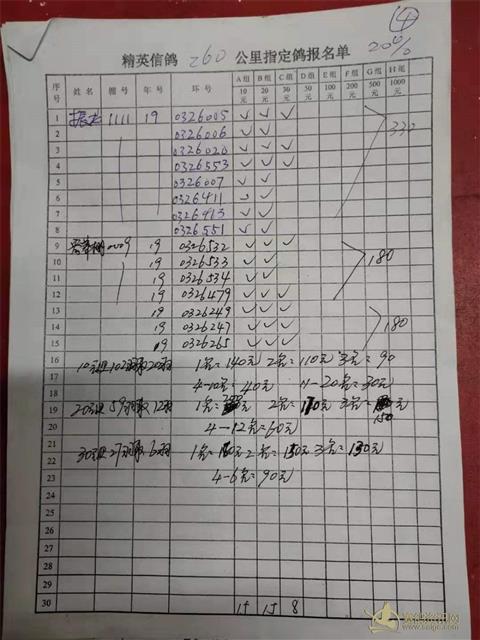 ④
20%
精英信鸽 260 公里指定鸽报名单
序号 姓名 棚号 年号 环号 A组10元 B组20元 C组30元 D组50元 E组100元 F组200元 G组500元 H组1000元
1 1111 19 0326005 ✓ ✓ ✓
2 0326006 ✓ ✓
3 0326020 ✓ ✓ ✓ 330
4 0326553 ✓ ✓ ✓
5 0326007 ✓ ✓
6 0326411 ✓ ✓
7 0326413 ✓ ✓
8 0326551 ✓ ✓
9 19 0326532 ✓ ✓ ✓
10 19 0326533 ✓ ✓ 180
11 19 0326534 ✓ ✓
12 19 0326479 ✓ ✓ ✓
13 19 0326249 ✓ ✓ ✓
14 19 0326247 ✓ ✓ ✓ 180
15 19 0326265 ✓ ✓ ✓
16 10元组102羽取20羽 1名=140元 2名=110元 3名=90
17 4-10名=40元 11-20名=30元
18
19 20元组59羽取12羽 1名= 元 2名=170元 3名= 150元
20 4-12名=60元
21
22 30元组27羽取6羽 1名= 元 2名=150元 3名=130元
23 4-6名=90元
24
25
26
27
28
29
30 15 15 8